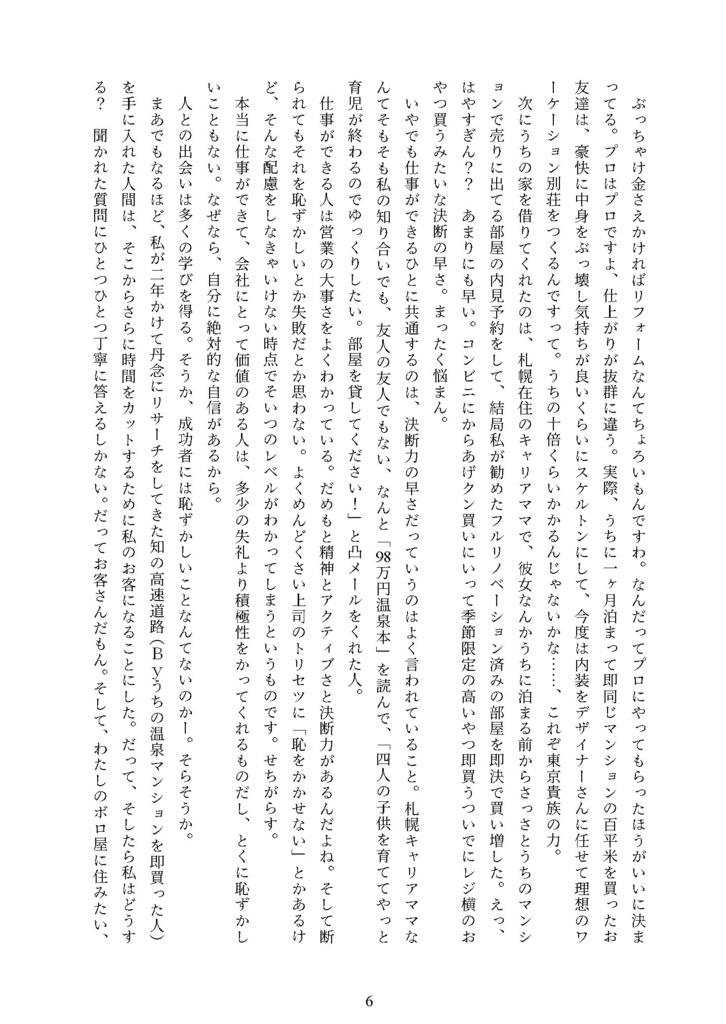 ぶっちゃけ金さえかければリフォームなんてちょろいもんですわ。なんだってプロにやってもらったほうがいいに決ま
ってる。プロはプロですよ、仕上がりが抜群に違う。実際、うちに一ヶ月泊まって即同じマンションの百平米を買ったお
友達は、豪快に中身をぶっ壊し気持ちが良いくらいにスケルトンにして、今度は内装をデザイナーさんに任せて理想のワ
ーケーション別荘をつくるんですって。うちの十倍くらいかかるんじゃないかな……、これぞ東京貴族の力。
次にうちの家を借りてくれたのは、札幌在住のキャリアママで、彼女なんかうちに泊まる前からさっさとうちのマンシ
ョンで売りに出てる部屋の内見予約をして、結局私が勧めたフルリノベーション済みの部屋を即決で買い増した。えっ、
はやすぎん？？　あまりにも早い。コンビニにからあげクン買いにいって季節限定の高いやつ即買うついでにレジ横のお
やつ買うみたいな決断の早さ。まったく悩まん。
いやでも仕事ができるひとに共通するのは、決断力の早さだっていうのはよく言われていること。札幌キャリアママな
んてそもそも私の知り合いでも、友人の友人でもない、なんと「98万円温泉本」を読んで、「四人の子供を育ててやっと
育児が終わるのでゆっくりしたい。部屋を貸してください！」と凸メールをくれた人。
仕事ができる人は営業の大事さをよくわかっている。だめもと精神とアクティブさと決断力があるんだよね。そして断
られてもそれを恥ずかしいとか失敗だとか思わない。よくめんどくさい上司のトリセツに「恥をかかせない」とかあるけ
ど、そんな配慮をしなきゃいけない時点でそいつのレベルがわかってしまうというものです。せちがらす。
本当に仕事ができて、会社にとって価値のある人は、多少の失礼より積極性をかってくれるものだし、とくに恥ずかし
いこともない。なぜなら、自分に絶対的な自信があるから。
人との出会いは多くの学びを得る。そうか、成功者には恥ずかしいことなんてないのかー。そらそうか。
まあでもなるほど、私が二年かけて丹念にリサーチをしてきた知の高速道路（Ｂｙうちの温泉マンションを即買った人）
を手に入れた人間は、そこからさらに時間をカットするために私のお客になることにした。だって、そしたら私はどうす
る？　聞かれた質問にひとつひとつ丁寧に答えるしかない。だってお客さんだもん。そして、わたしのボロ屋に住みたい、
6